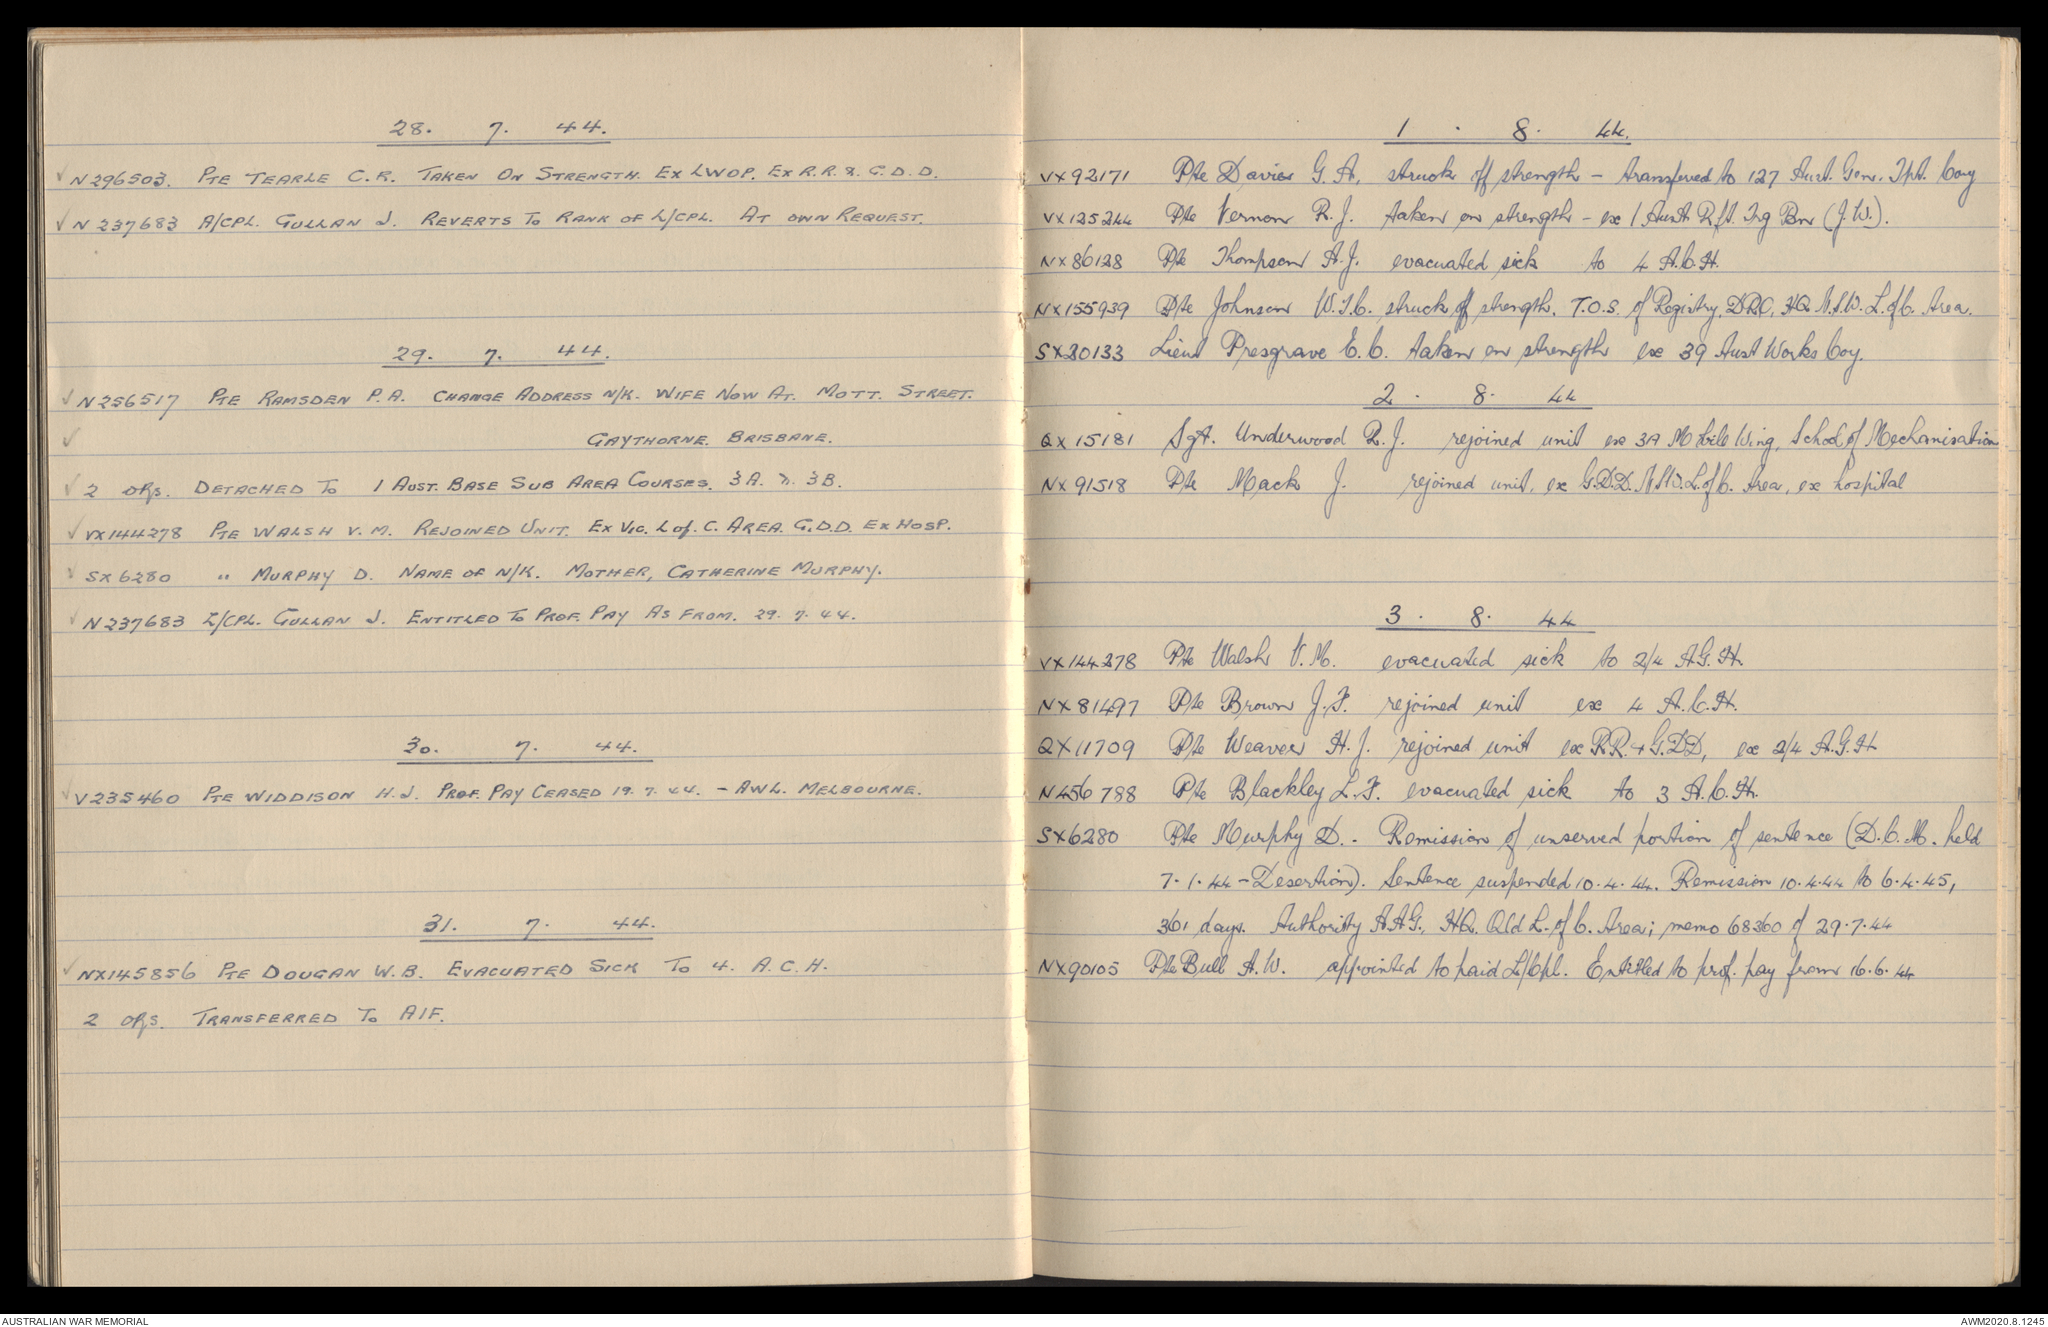 28. 7. 44.
✓ N296503. Pte TEARLE C.R. TAKEN ON STRENGTH. EX LWOP. EX R.R. & G.D.D.
✓ N237683 A/CPL. GULLAN J. REVERTS TO RANK OF L/CPL. AT OWN REQUEST.
29. 7. 44.
✓ N256517 Pte RAMSDEN P.A. CHANGE ADDRESS N/K. WIFE NOW AT. MOTT. STREET.
✓ GAYTHORNE. BRISBANE.
✓ 2 ORs. DETACHED TO 1 AUST. BASE SUB AREA COURSES. 3A. & 3B.
✓ VX144278 Pte WALSH V.M. REJOINED UNIT. EX VIC. L of. C. AREA. G.D.D. EX HOSP.
✓ SX6280 " MURPHY D. NAME OF N/K. MOTHER, CATHERINE MURPHY.
✓ N237683 L/CPL. GULLAN J. ENTITLED TO PROF. PAY AS FROM. 29. 7. 44.
30. 7. 44.
✓ V235460 Pte WIDDISON H.J. PROF. PAY CEASED 19. 7. 44. - AWL. MELBOURNE.
31. 7. 44.
✓ NX145856 Pte DOUGAN W.B. EVACUATED SICK TO 4. A.C.H.
2 ORs. TRANSFERRED TO AIF.
1 . 8. 44.
VX92171 Pte Davies G.A. struck off strength - transferred to 127 Aust. Gen. Tpt. Coy
VX125244 Pte Vernon R.J. taken on strength - ex 1 Aust Rft. Trg Bn (J.W.).
NX86128 Pte Thompson A.J. evacuated sick to 4 A.C.H.
NX155939 Pte Johnson W.T.C. struck off strength. T.O.S. of Registry, DRC, HQ N.S.W. L. of C. Area.
SX20133 Lieut Presgrave E.C. taken on strength ex 39 Aust Works Coy.
2 . 8. 44
QX15181 Sgt. Underwood R.J. rejoined unit ex 3A Mobile Wing, School of Mechanisation
NX91518 Pte Mack J. rejoined unit, ex G.D.D. N.S.W. L. of C. Area, ex hospital
3 . 8. 44
VX144278 Pte Walsh V.M. evacuated sick to 2/4 A.G.H.
NX81497 Pte Brown J.F. rejoined unit ex 4 A.C.H.
QX11709 Pte Weaver H.J. rejoined unit ex R.R. & G.D.D, ex 2/4 A.G.H
N456788 Pte Blackley L.F. evacuated sick to 3 A.C.H.
SX6280 Pte Murphy D. - Remission of unserved portion of sentence (D.C.M. held
7.1.44 - Desertion). Sentence suspended 10.4.44. Remission 10.4.44 to 6.4.45,
361 days. Authority A.A.G., HQ. Qld L. of C. Area; memo 68360 of 29.7.44
NX90105 Pte Bull A.W. appointed to paid L/Cpl. Entitled to prof. pay from 16.6.44
AUSTRALIAN WAR MEMORIAL
AWM2020.8.1245